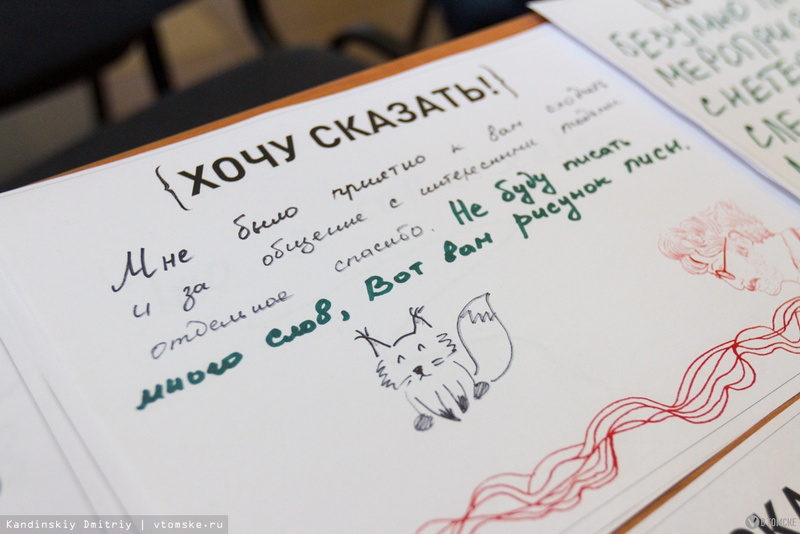 {ХОЧУ СКАЗАТЬ!}
Мне было приятно к вам сходить
и за общение с интересными людьми
отдельное спасибо. Не буду писать
много слов, Вот вам рисунок лисы.
ХО
БЕЗУМНО
МЕРОПРИЯ
С НЕТЕ
СЛЕ
Kandinskiy Dmitriy | vtomske.ru
ВТОМСКЕ